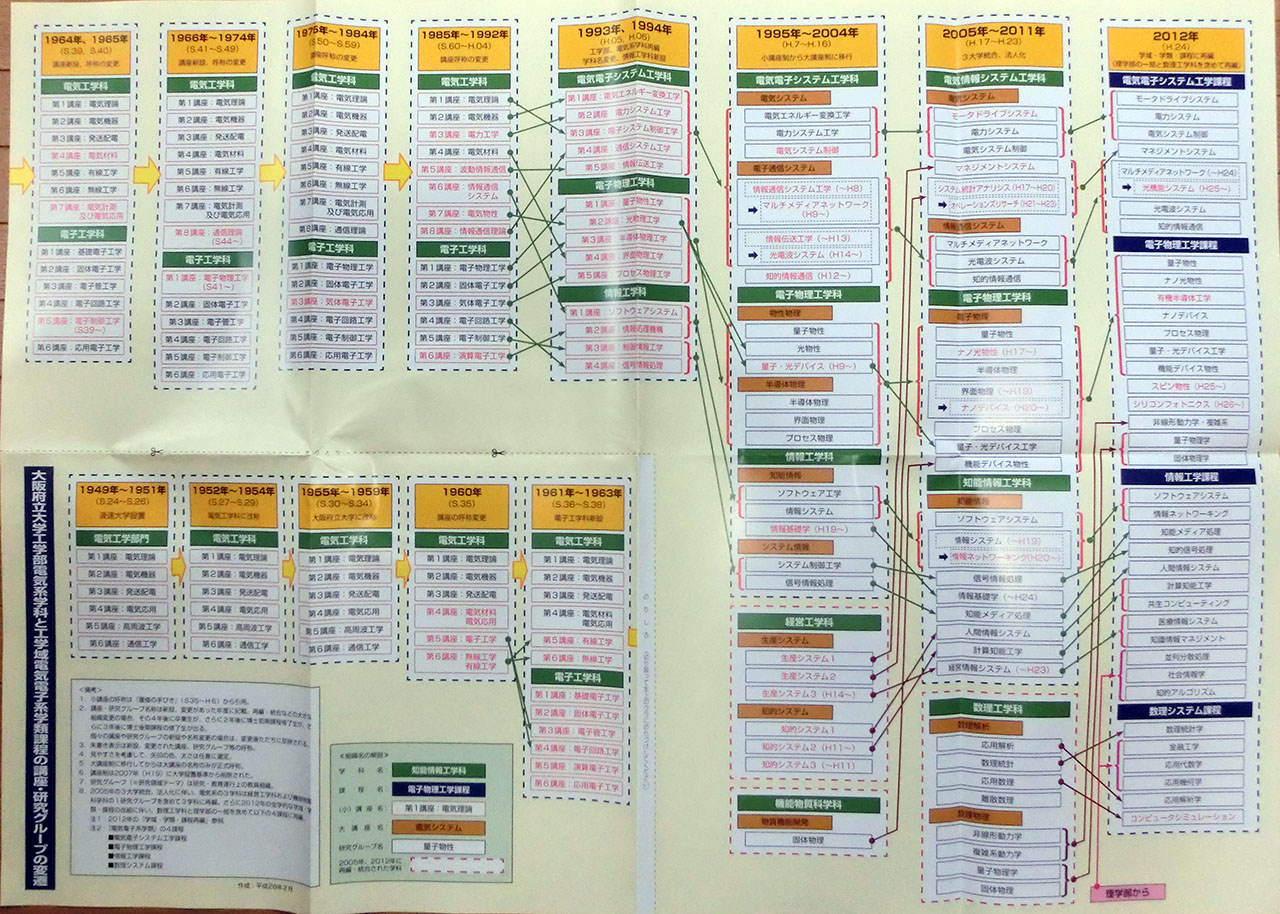 大阪府立大学工学部電気系学科と工学域電気電子系学類課程の講座・研究グループの変遷
1949年～1951年
(S.24～S.26)
浪速大学設置
電気工学部門
第1講座：電気理論
第2講座：電気機器
第3講座：発送配電
第4講座：電気応用
第5講座：高周波工学
第6講座：通信工学
1952年～1954年
(S.27～S.29)
電気工学科に改称
電気工学科
第1講座：電気理論
第2講座：電気機器
第3講座：発送配電
第4講座：電気応用
第5講座：高周波工学
第6講座：通信工学
1955年～1959年
(S.30～S.34)
大阪府立大学に改称
電気工学科
第1講座：電気理論
第2講座：電気機器
第3講座：発送配電
第4講座：電気応用
第5講座：高周波工学
第6講座：通信工学
1960年
(S.35)
講座の呼称変更
電気工学科
第1講座：電気理論
第2講座：電気機器
第3講座：発送配電
第4講座：電気材料
電気応用
第5講座：電子工学
第6講座：無線工学
有線工学
1961年～1963年
(S.36～S.38)
電子工学科新設
電気工学科
第1講座：電気理論
第2講座：電気機器
第3講座：発送配電
第4講座：電気材料
電気応用
第5講座：有線工学
第6講座：無線工学
電子工学科
第1講座：基礎電子工学
第2講座：固体電子工学
第3講座：電子管工学
第4講座：電子回路工学
第5講座：演算電子工学
第6講座：応用電子工学
1964年、1965年
(S.39、S.40)
講座新設、呼称の変更
電気工学科
第1講座：電気理論
第2講座：電気機器
第3講座：発送配電
第4講座：電気材料
第5講座：有線工学
第6講座：無線工学
第7講座：電気計測
及び電気応用
電子工学科
第1講座：基礎電子工学
第2講座：固体電子工学
第3講座：電子管工学
第4講座：電子回路工学
第5講座：電子制御工学
(S39～)
第6講座：応用電子工学
1966年～1974年
(S.41～S.49)
講座新設、呼称の変更
電気工学科
第1講座：電気理論
第2講座：電気機器
第3講座：発送配電
第4講座：電気材料
第5講座：有線工学
第6講座：無線工学
第7講座：電気計測
及び電気応用
第8講座：通信理論
(S44～)
電子工学科
第1講座：電子物理工学
(S41～)
第2講座：固体電子工学
第3講座：電子管工学
第4講座：電子回路工学
第5講座：電子制御工学
第6講座：応用電子工学
1975年～1984年
(S.50～S.59)
講座呼称の変更
電気工学科
第1講座：電気理論
第2講座：電気機器
第3講座：発送配電
第4講座：電気材料
第5講座：有線工学
第6講座：無線工学
第7講座：電気計測
及び電気応用
第8講座：通信理論
電子工学科
第1講座：電子物理工学
第2講座：固体電子工学
第3講座：気体電子工学
第4講座：電子回路工学
第5講座：電子制御工学
第6講座：応用電子工学
1985年～1992年
(S.60～H.04)
講座呼称の変更
電気工学科
第1講座：電気理論
第2講座：電気機器
第3講座：電力工学
第4講座：電気材料
第5講座：波動情報通信
第6講座：情報通信
システム
第7講座：電気物性
第8講座：情報通信理論
電子工学科
第1講座：電子物理工学
第2講座：固体電子工学
第3講座：気体電子工学
第4講座：電子回路工学
第5講座：電子制御工学
第6講座：演算電子工学
1993年、1994年
(H.05、H.06)
工学部、電気系学科再編
学科名変更、情報工学科新設
電気電子システム工学科
第1講座：電気エネルギー変換工学
第2講座：電力システム工学
第3講座：電子システム制御工学
第4講座：通信システム工学
第5講座：情報伝送工学
電子物理工学科
第1講座：量子物性工学
第2講座：光物理工学
第3講座：半導体物理工学
第4講座：界面物理工学
第5講座：プロセス物理工学
情報工学科
第1講座：ソフトウェアシステム
第2講座：情報処理機構
第3講座：知能情報工学
第4講座：信号情報処理
1995年～2004年
(H.7～H.16)
小講座制から大講座制に移行
電気電子システム工学科
電気システム
電気エネルギー変換工学
電力システム工学
電気システム制御
電子通信システム
情報通信システム工学（～H8）
➡ マルチメディアネットワーク
（H9～）
情報伝送工学（～H13）
➡ 光電波システム（H14～）
知的情報通信（H12～）
電子物理工学科
物性物理
量子物性
光物性
量子・光デバイス（H9～）
半導体物理
半導体物理
界面物理
プロセス物理
情報工学科
知能情報
ソフトウェア工学
情報システム
情報基礎学（H19～）
システム情報
システム制御工学
信号情報処理
経営工学科
生産システム
生産システム1
生産システム2
生産システム3（H14～）
知的システム
知的システム1
知的システム2（H11～）
知的システム3（～H11）
機能物質科学科
物質機能開発
固体物理
2005年～2011年
(H.17～H.23)
3大学統合、法人化
電気情報システム工学科
電気システム
モータドライブシステム
電力システム
電気システム制御
マネジメントシステム
システム統計アナリシス（H17～H20）
➡ オペレーションズリサーチ（H21～H23）
情報通信システム
マルチメディアネットワーク
光電波システム
知的情報通信
電子物理工学科
電子物理
量子物性
ナノ光物性（H17～）
半導体物理
界面物理（～H19）
➡ ナノデバイス（H20～）
プロセス物理
量子・光デバイス工学
機能デバイス物性
知能情報工学科
知能情報
ソフトウェアシステム
情報システム（～H19）
➡ 情報ネットワーキング（H20～）
信号情報処理
情報基礎学（～H24）
知能メディア処理
人間情報システム
計算知能工学
経営情報システム（～H23）
数理工学科
数理解析
応用解析
数理統計
応用数理
離散数理
数理物理
非線形動力学
複雑系動力学
量子物理学
固体物理
2012年
(H.24)
学域・学類・課程に再編
(理学部の一部と数理工学科を含めて再編)
電気電子システム工学課程
モータドライブシステム
電力システム
電気システム制御
マネジメントシステム
マルチメディアネットワーク（～H24）
➡ 光機能システム（H25～）
光電波システム
知的情報通信
電子物理工学課程
量子物性
ナノ光物性
有機半導体工学
ナノデバイス
プロセス物理
量子・光デバイス工学
機能デバイス物性
スピン物性（H25～）
シリコンフォトニクス（H26～）
非線形動力学・複雑系
量子物理学
固体物理学
情報工学課程
ソフトウェアシステム
情報ネットワーキング
知能メディア処理
知的信号処理
人間情報システム
計算知能工学
共生コンピューティング
医療情報システム
知識情報マネジメント
並列分散処理
社会情報学
知的アルゴリズム
数理システム課程
数理統計学
金融工学
応用代数学
応用幾何学
応用解析学
コンピュータシミュレーション
理学部から
＜備考＞
3. 朱書き表示は新設、変更された講座、研究グループ等の呼称。
4. 見やすさを考慮して、矢印の色、太さは任意に選定。
5. 大講座制に移行してからは大講座の名称のみが正式呼称。
6. 講座制は2007年（H19）に大学設置基準から削除された。
注1 2012年の「学域・学類・課程再編」参照
注2 「電気電子系学類」の4課程
■電気電子システム工学課程
■電子物理工学課程
■情報工学課程
■数理システム課程
作成：平成28年2月
≪組織名の解説≫
学科名 知能情報工学科
課程名 電子物理工学課程
(小)講座名 第1講座：電気理論
大講座名 電気システム
研究グループ名 量子物性
2005年、2012年に
再編・統合された学科